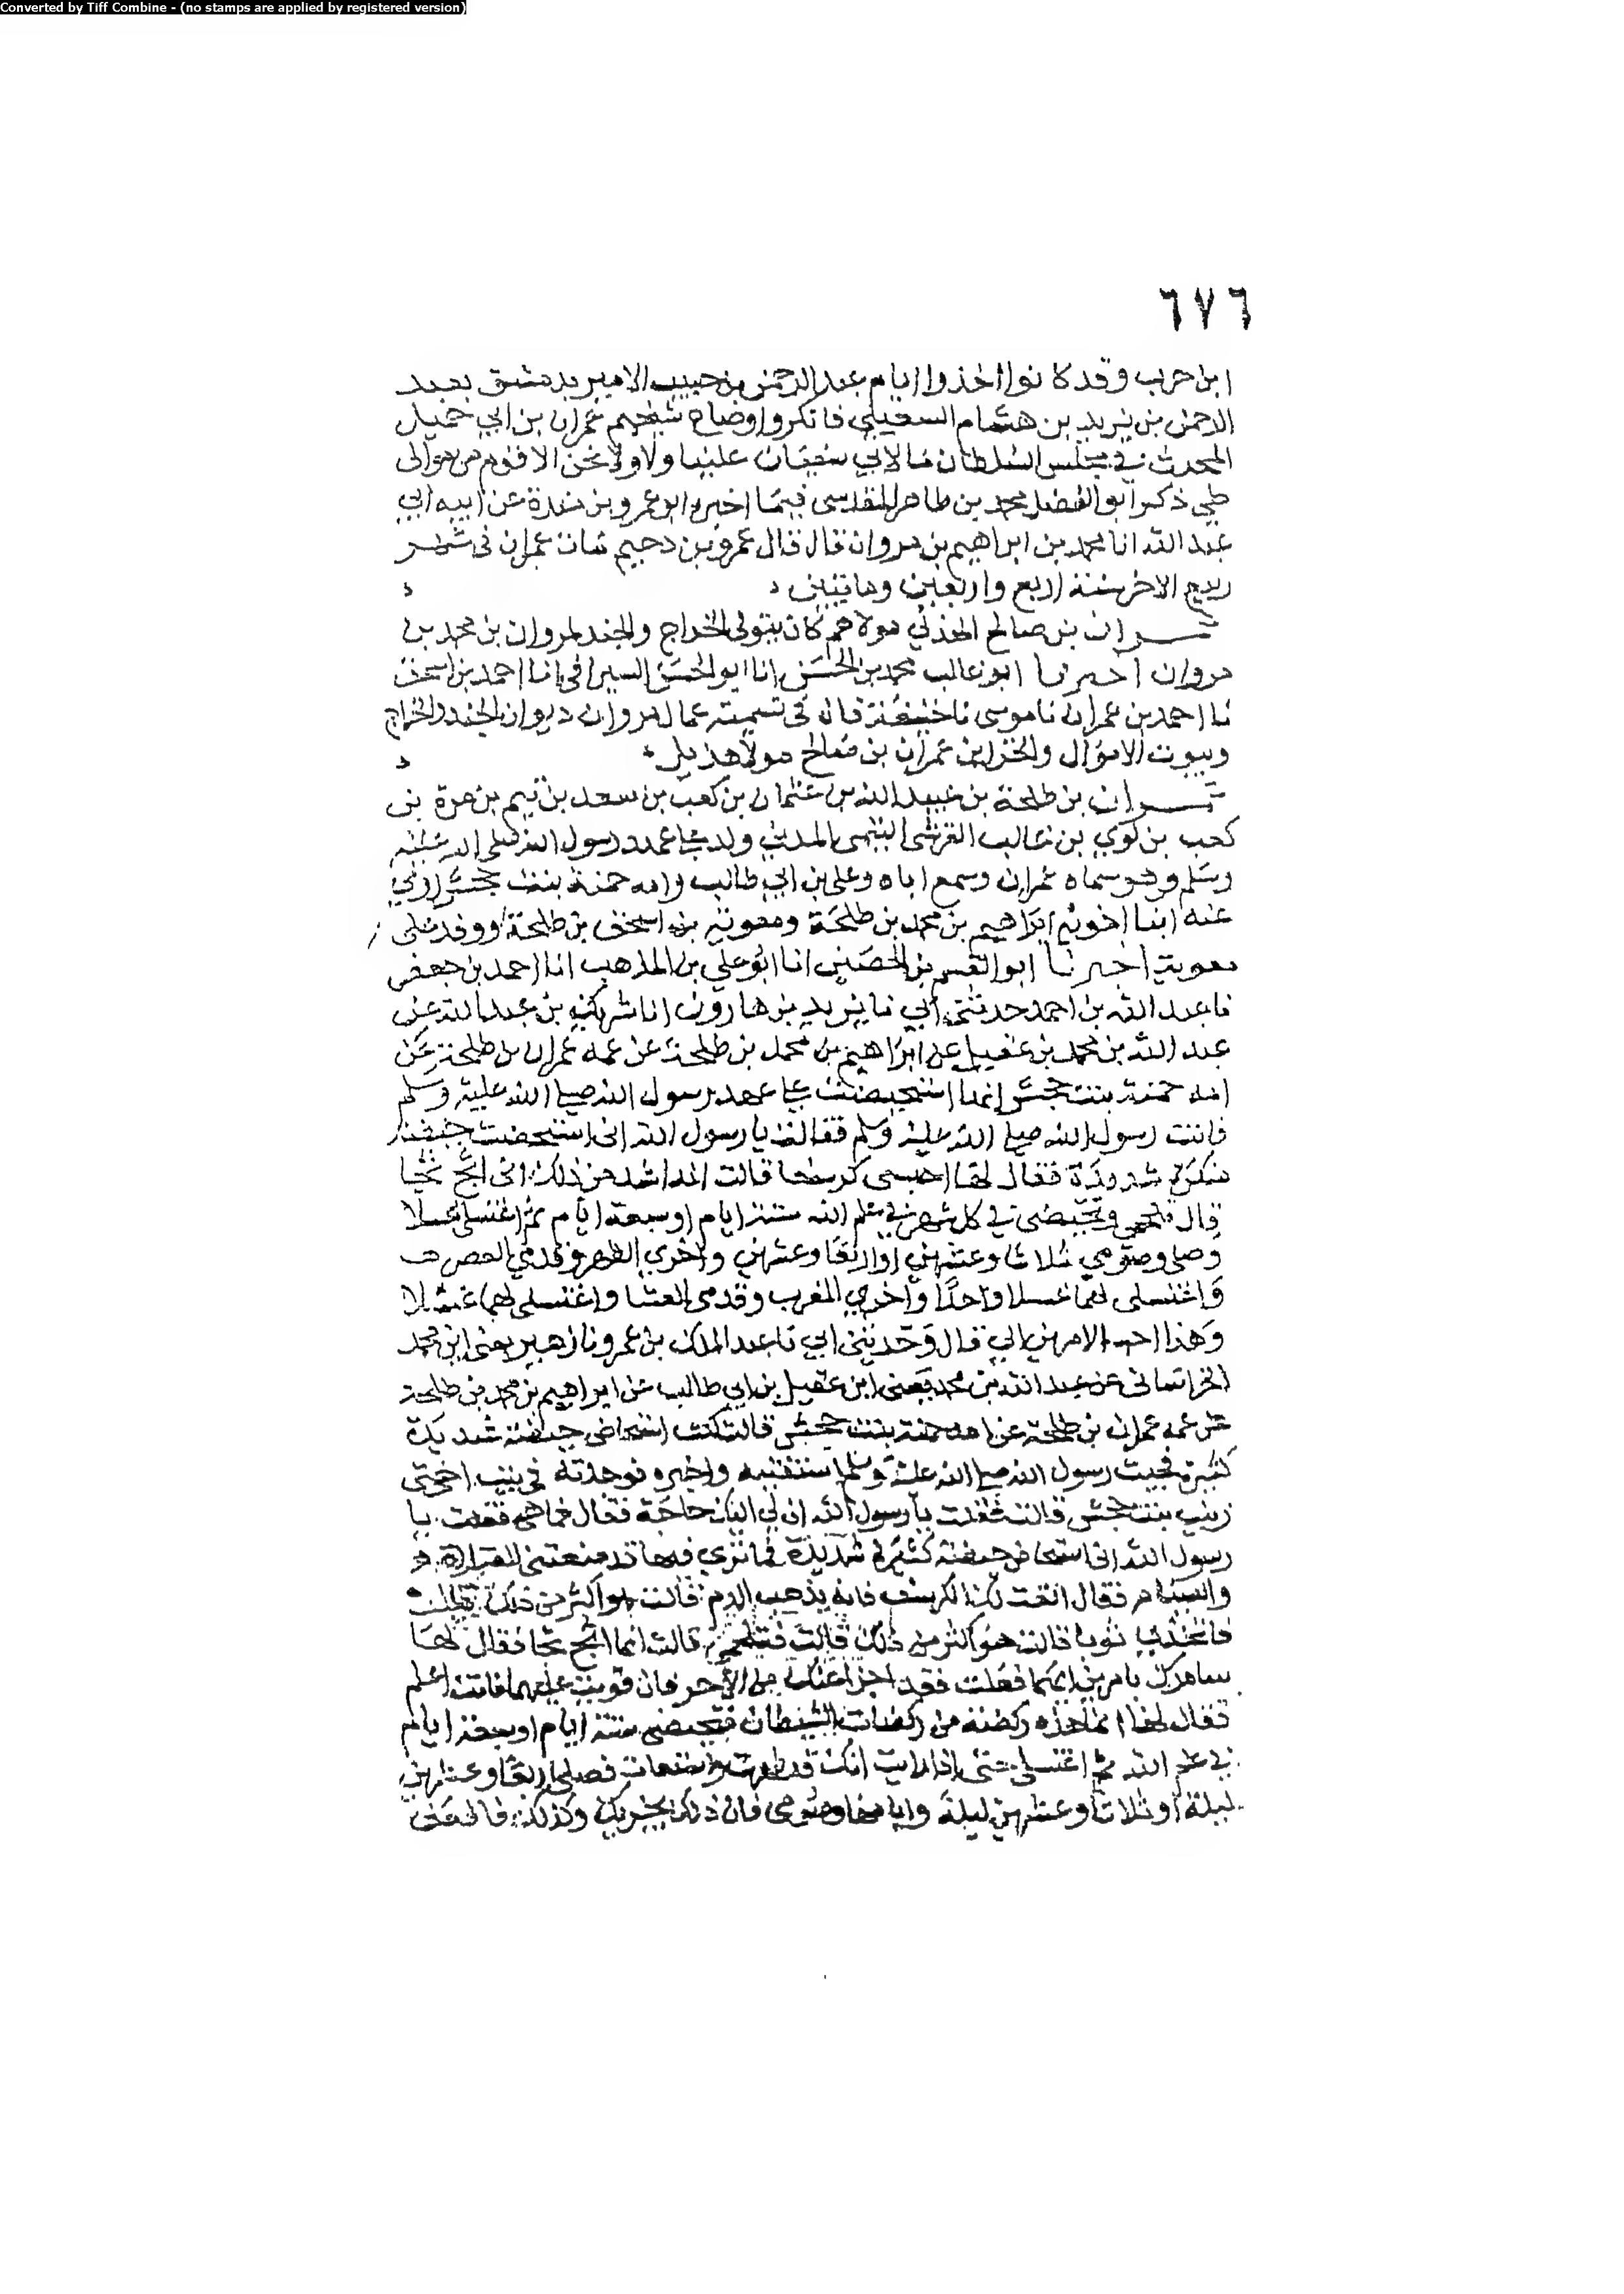 Converted by Tiff Combine - (no stamps are applied by registered version)
٦٧٦
ابن حرب وقد كانوا اخذوا ايام عبد الرحمن بن حبيب الامير بدمشق بعبد
الرحمن بن يزيد بن هشام السفيلي فانكروا وصاح شيخهم عمران بن ابي جميل
المحدث في مجلس السلطان ما لابي سفيان علينا ولا ولا نحن الا قوم من موالي
طي ذكر ابو الفضل محمد بن طاهر المقدسي فيما اخبره ابو عمرو بن مندة عن ابيه ابي
عبد الله انا محمد بن ابراهيم بن مروان قال قال عمرو بن دحيم مات عمران في شهر
ربيع الاخر سنة اربع واربعين ومايتين
عمران بن صالح الهذلي مولاهم كان يتولى الخراج والجند لمروان بن محمد بن
مروان اخبرنا ابو غالب محمد بن الحسن انا ابو الحسن السيرافي انا احمد بن اسحق
نا احمد بن عمران نا موسى نا خليفة قال في تسمية عمال مروان ديوان الجند والخراج
وبيوت الاموال والخزاين عمران بن صالح مولا هذيل
عمران بن طلحة بن عبيد الله بن عثمان بن كعب بن سعد بن تيم بن مرة بن
كعب بن لوي بن غالب القرشي التيمي المدني ولد على عهد رسول الله صلى الله عليه
وسلم وهو سماه عمران وسمع اباه وعلي بن ابي طالب وامه حمنة بنت جحش روي
عنه ابنا اخويه ابراهيم بن محمد بن طلحة ومعوية بن اسحق بن طلحة ووفد على
معوية اخبرنا ابو القسم بن الحصين انا ابو علي بن المذهب انا احمد بن جعفر
نا عبد الله بن احمد حدثني ابي نا يزيد بن هارون انا شريك بن عبد الله عن
عبد الله بن محمد بن عقيل عن ابراهيم بن محمد بن طلحة عن عمه عمران بن طلحة عن
امه حمنة بنت جحش انها استحيضت على عهد رسول الله صلى الله عليه وسلم
فاتت رسول الله صلى الله عليه وسلم فقالت يا رسول الله اني استحضت حيضة
منكرة شديدة فقال لها احتشي كرسفا قالت انه اشد من ذلك اني اثج ثجا
قال تلجمي وتحيضي في كل شهر في علم الله ستة ايام او سبعة ايام ثم اغتسلي غسلا
وصلي وصومي ثلاثا وعشرين او اربعا وعشرين واخري الظهر وقدمي العصر
واغتسلي لهما غسلا واحدا واخري المغرب وقدمي العشا واغتسلي لهما غسلا
وهذا احب الامرين الي قال وحدثني ابي نا عبد الملك بن عمرو نا زهير يعني ابن محمد
الخراساني عن عبد الله بن محمد يعني ابن عقيل بن ابي طالب عن ابراهيم بن محمد بن طلحة
عن عمه عمران بن طلحة عن امه حمنة بنت جحش قالت كنت استحاض حيضة شديدة
كثيرة فجيت رسول الله صلى الله عليه وسلم استفتيه واخبره فوجدته في بيت اختي
زينب بنت جحش قالت فقلت يا رسول الله ان لي اليك حاجة فقال فما هي فقلت يا
رسول الله اني استحاض حيضة كثيرة شديدة فما ترى فيها قد منعتني الصلاة
والصيام فقال انعت لك الكرسف فانه يذهب الدم قالت هو اكثر من ذلك
فاتخذي ثوبا قالت هو اكثر من ذلك قالت فتلجمي قالت انما اثج ثجا فقال لها
سامرك بامرين ايهما فعلت فقد اجزا عنك من الآخر فان قويت عليهما فانت اعلم
فقال لها انما هذه ركضة من ركضات الشيطان فتحيضي ستة ايام او سبعة ايام
في علم الله ثم اغتسلي حتى اذا رايت انك قد طهرت واستنقات فصلي اربعا وعشرين
ليلة او ثلاثا وعشرين ليلة وايامها وصومي فان ذلك يجزيك وكذلك فافعلي